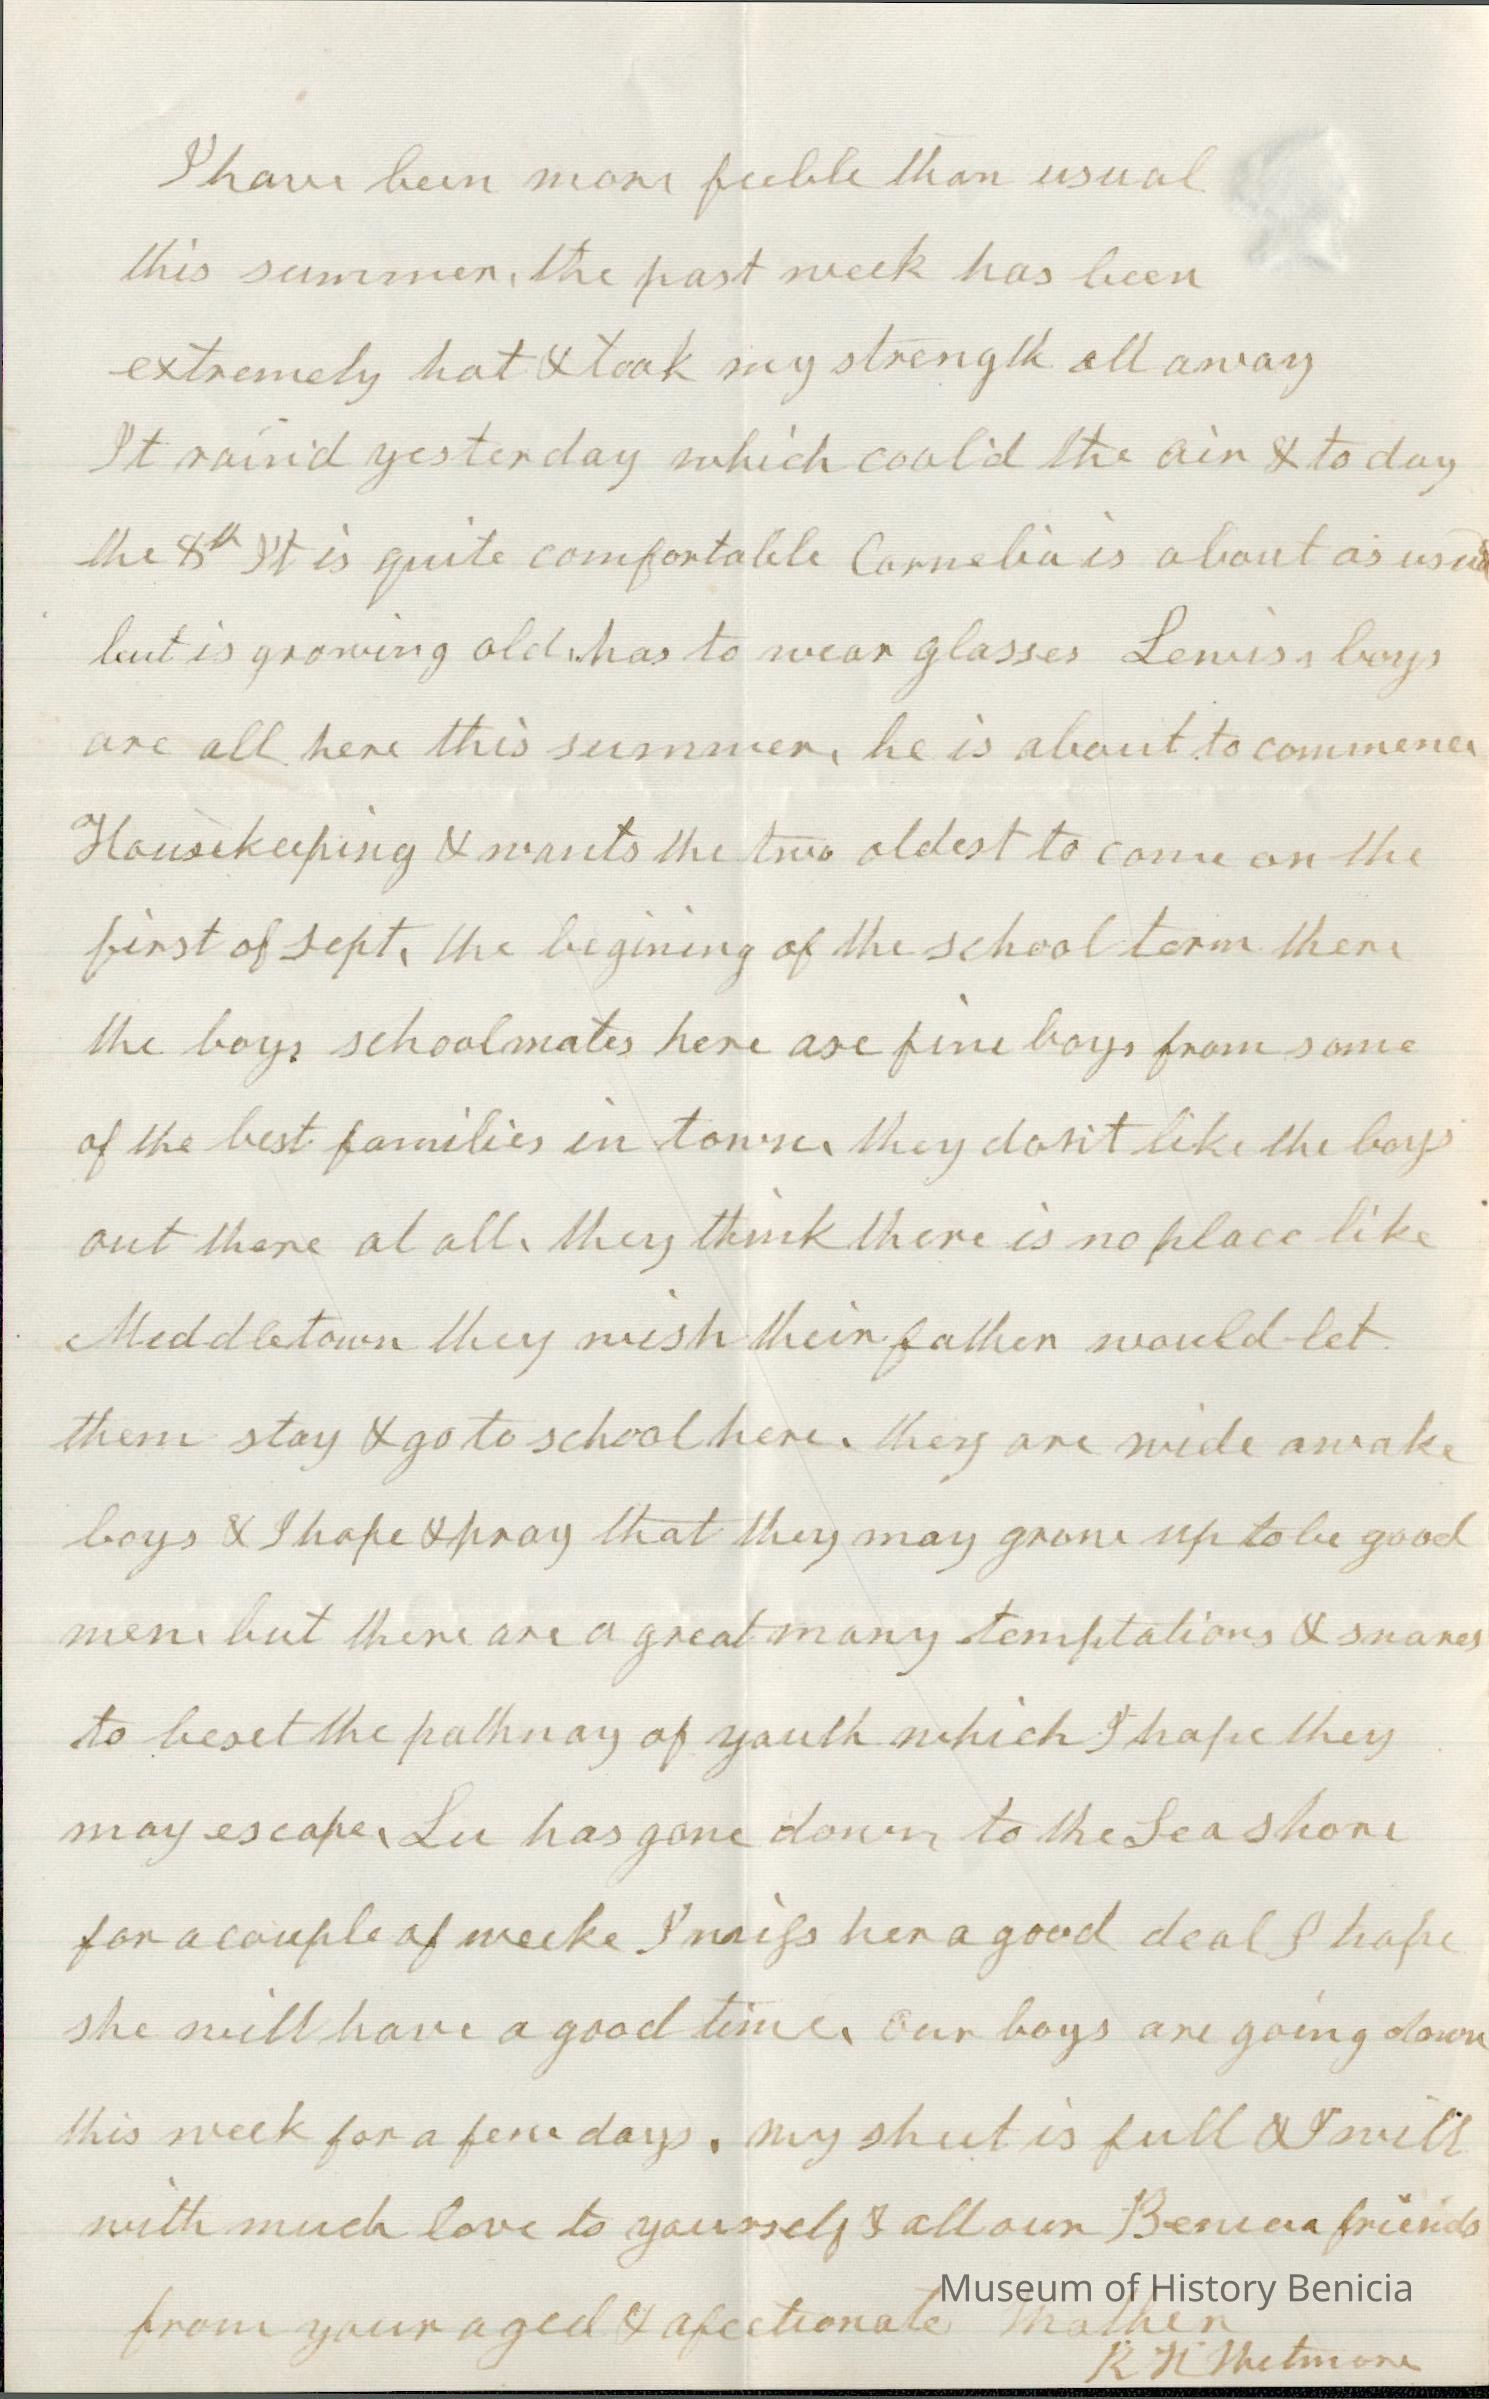 I have been more feeble than usual
this summer, the past week has been
extremely hot & took my strength all away
It rain'd yesterday which cool'd the air & to day
the 8th It is quite comfortable Cornelia is about as usual
but is growing old, has to wear glasses Lewis, boys
are all here this summer, he is about to commence
Housekeeping & wants the two oldest to come on the
first of sept, the begining of the school term there
the boys schoolmates here are fine boys from some
of the best families in town, they don't like the boys
out there at all, they think there is no place like
Meddletown they wish their father would let
them stay & go to school here. they are wide awake
boys & I hope & pray that they may grow up to be good
men, but there are a great many temptations & snares
to beset the pathway of youth which I hope they
may escape, Lu has gone down to the Sea shore
for a couple of weeks I miss her a good deal I hope
she will have a good time, Our boys are going down
this week for a few days, my sheet is full & I will
with much love to yourself & all our Benicia friends
from your aged & afectionate Mother
R W Wetmore
Museum of History Benicia